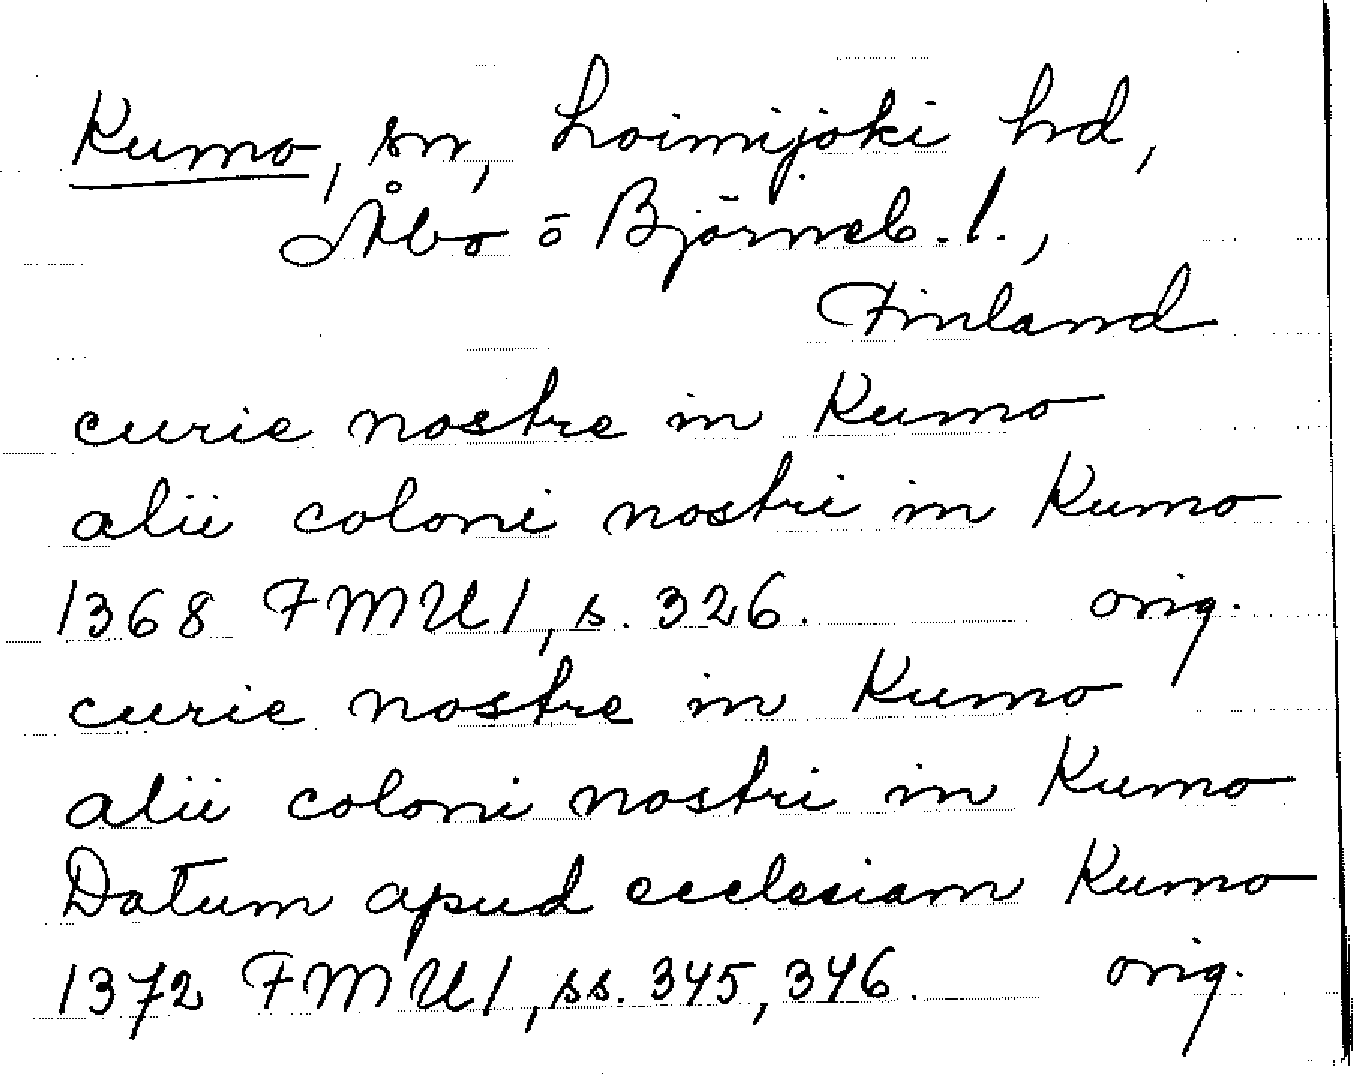 Kumo, sn, Loimijoki hd,
Åbo o Björneb. l.,
Finland
curie nostre in Kumo
alii coloni nostri in Kumo
1368 FMU 1, s. 326. orig.
curie nostre in Kumo
alii coloni nostri in Kumo
Datum apud ecclesiam Kumo
1372 FMU 1, ss. 345, 346. orig.